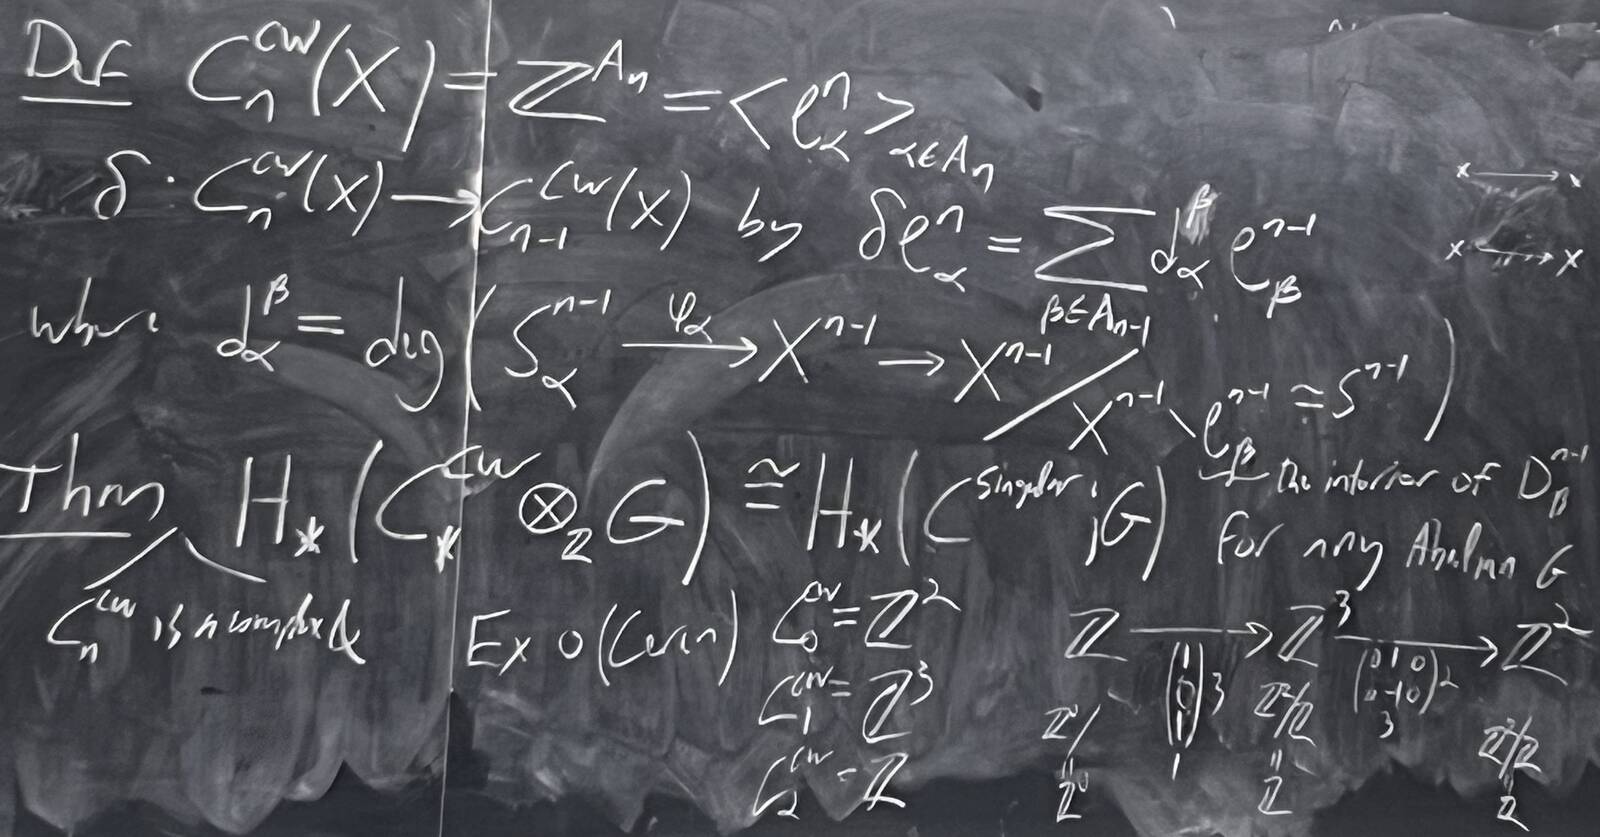 Def C_n^{CW}(X) = ℤ^{A_n} = <e_α^n>_{α∈A_n}
δ · C_n^{CW}(X) → C_{n-1}^{CW}(X) by δe_α^n = Σ_{β∈A_{n-1}} d_α^β e_β^{n-1}
where d_α^β = deg(S_α^{n-1} →^{φ_α} X^{n-1} → X^{n-1}/X^{n-1}\e_β^{n-1} ≃ S^{n-1})
the interior of D_β^{n-1}
Thm H_*(C_*^{CW} ⊗_ℤ G) ≅ H_*(C^{singular}; G) for any Abelian G
C_n^{CW} is a complex &
Ex 0 C_0^{CW} = ℤ^2
C_1^{CW} = ℤ^3
C_2^{CW} = ℤ
ℤ → ℤ^3 → ℤ^2
(1 0 1) 3
1
(0 1 0
0 -1 0) 2
3
ℤ^2/ℤ
=
ℤ
ℤ^2/ℤ
=
ℤ
x → x
x → x